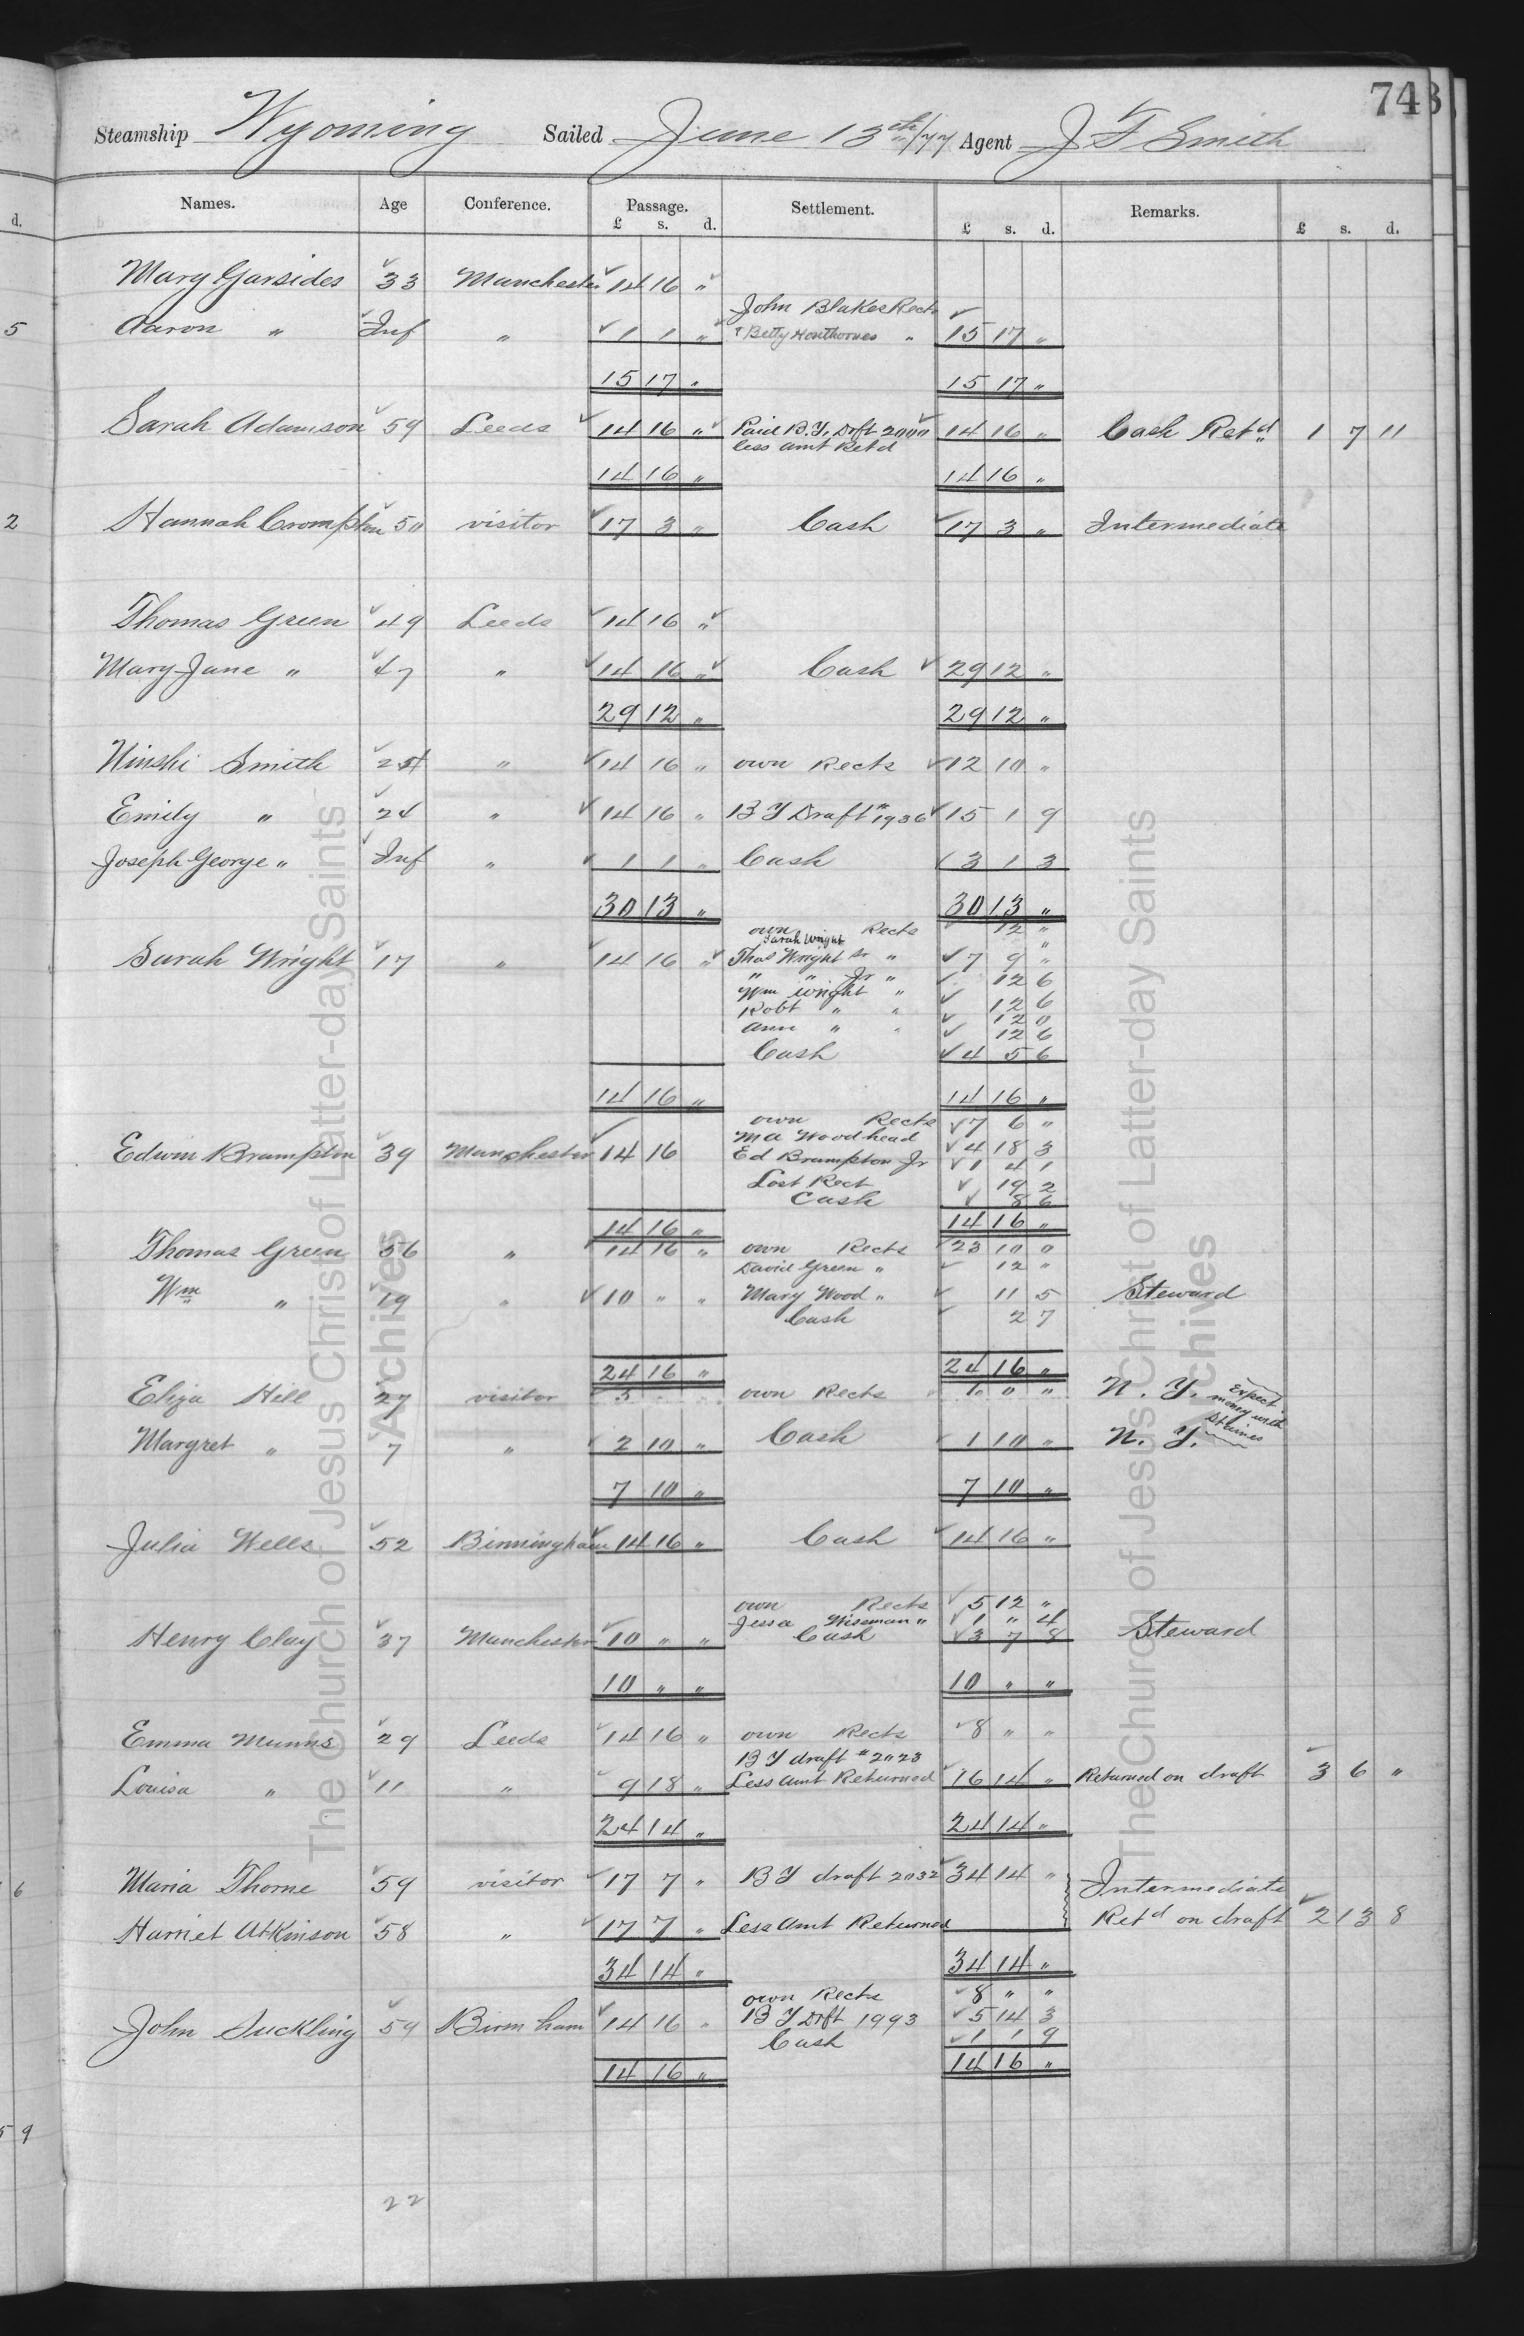 743
Steamship Wyoming Sailed June 13th/77 Agent J F Smith
Names. Age Conference. Passage. Settlement. Remarks.
£ s. d. £ s. d. £ s. d.
Mary Garsides 33 Manchester 14 16 "
John Blakes Rects
Aaron " Inf " 1 1 " & Betty " 15 17 "
15 17 " 15 17 "
Sarah Adamson 59 Leeds 14 16 " Paid B.Y. Drft 2000 14 16 " Cash Retd 1 7 11
less amt Retd
14 16 " 14 16 "
Hannah Crompton 50 visitor 17 3 " Cash 17 3 " Intermediate
Thomas Green 49 Leeds 14 16 "
Mary Jane " 47 " 14 16 " Cash 29 12 "
29 12 " 29 12 "
Smith " 14 16 " own Rects 12 10 "
Emily " 24 " 14 16 " B Y Draft # 1936 15 1 9
Joseph George " Inf " 1 1 " Cash 3 1 3
30 13 " 30 13 "
own Rects 12 "
Sarah Wright
Sarah Wright 17 " 14 16 " Thos Wright Sr " 7 9 "
" " Jr " 12 6
Wm Wright " 12 6
Robt " " 12 0
Ann " " 12 6
Cash 4 5 6
14 16 " 14 16 "
own Rects 7 6 "
Edwin Brampton 39 Manchester 14 16 Ma Woodhead 4 18 3
Ed Brampton Jr 1 4 1
Lost Rect 19 2
Cash 8 6
14 16 " 14 16 "
Thomas Green 56 " 14 16 " own Rects 23 10 0
David Green " 12 "
Wm " 19 " 10 " " Mary Wood " 11 5 Steward
Cash 2 7
24 16 " 24 16 "
Eliza Hill 27 visitor 5 " " own Rects 6 0 " N. Y. Expect money with Staines
Margret " 7 " 2 10 " Cash 1 10 " N. Y.
7 10 " 7 10 "
Julia Wells 52 Birmingham 14 16 " Cash 14 16 "
own Rects 5 12 "
Jessa Wiseman " 1 " 4
Henry Clay 37 Manchester 10 " " Cash 3 7 8 Steward
10 " " 10 " "
Emma Munns 29 Leeds 14 16 " own Rects 8 " "
B Y draft # 2023
Louisa " 11 " 9 18 " Less Amt Returned 16 14 " Returned on draft 3 6 "
24 14 " 24 14 "
Maria Thorne 59 visitor 17 7 " B Y draft 2032 34 14 " Intermediate
Harriet Atkinson 58 " 17 7 " Less Amt Returned Retd on draft 2 13 8
34 14 " 34 14 "
own Rects 8 " "
John Suckling 59 Birmham 14 16 " B Y Drft 1993 5 14 3
Cash 1 1 9
14 16 " 14 16 "
22
The Church of Jesus Christ of Latter-day Saints
Archives
The Church of Jesus Christ of Latter-day Saints
Archives